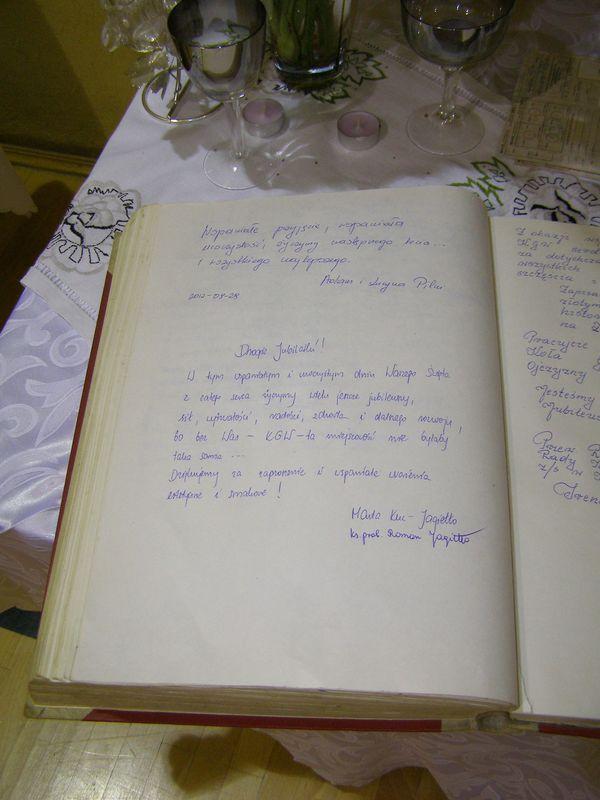 Wspaniałe przyjęcie, wspaniała
uroczystość, życzymy następnego
i wszystkiego najlepszego.
i
2012-09-28
Drogie Jubilatki!
W tym wspaniałym i uroczystym dniu Waszego Święta
z całego serca życzymy wielu jeszcze jubileuszy,
sił, wytrwałości, radości, zdrowia i dalszego rozwoju,
bo bez Was - KGW - ta miejscowość nie byłaby
taka sama ...
Dziękujemy za zaproszenie i wspaniałe wrażenia
estetyczne i smakowe!
Marta Kuc-Jagiełło
ks. prob. Roman Jagiełło
Z okazji
KGW
za dotychcza
wszystkich
szczęścia
złotymi
na
Pracujcie
Koła
Ojczyzny
Jesteśmy
Jubileusz
Przew. R
Rady
z/s w
Iren